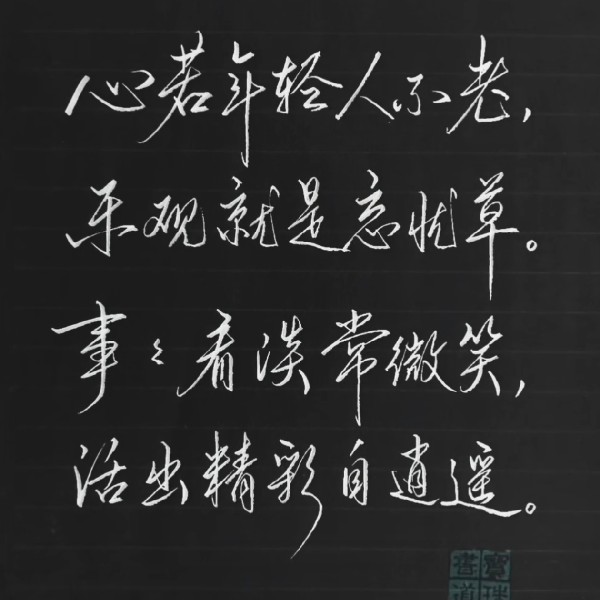 心若年轻人不老，
乐观就是忘忧草。
事々看淡常微笑，
活出精彩自逍遥。